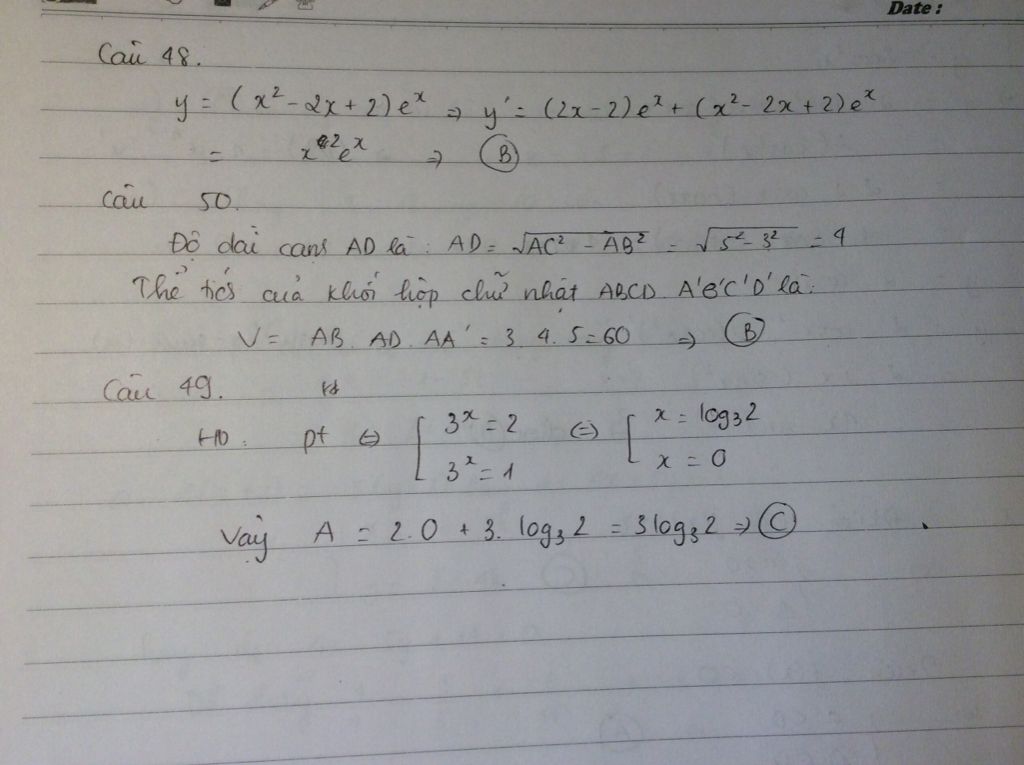 Date :
Câu 48.
y = (x² - 2x + 2)eˣ ⇒ y' = (2x - 2)eˣ + (x² - 2x + 2)eˣ
= x²eˣ ⇒ B
Câu 50.
Độ dài cạnh AD là : AD = √AC² - AB² = √5² - 3² = 4
Thể tích của khối hộp chữ nhật ABCD. A'B'C'D' là:
V = AB. AD. AA' = 3. 4. 5 = 60 ⇒ B
Câu 49.
HD : pt ⇔ [ 3ˣ = 2 ⇔ [ x = log₃2
3ˣ = 1 x = 0
Vậy A = 2.0 + 3. log₃2 = 3log₃2 ⇒ C